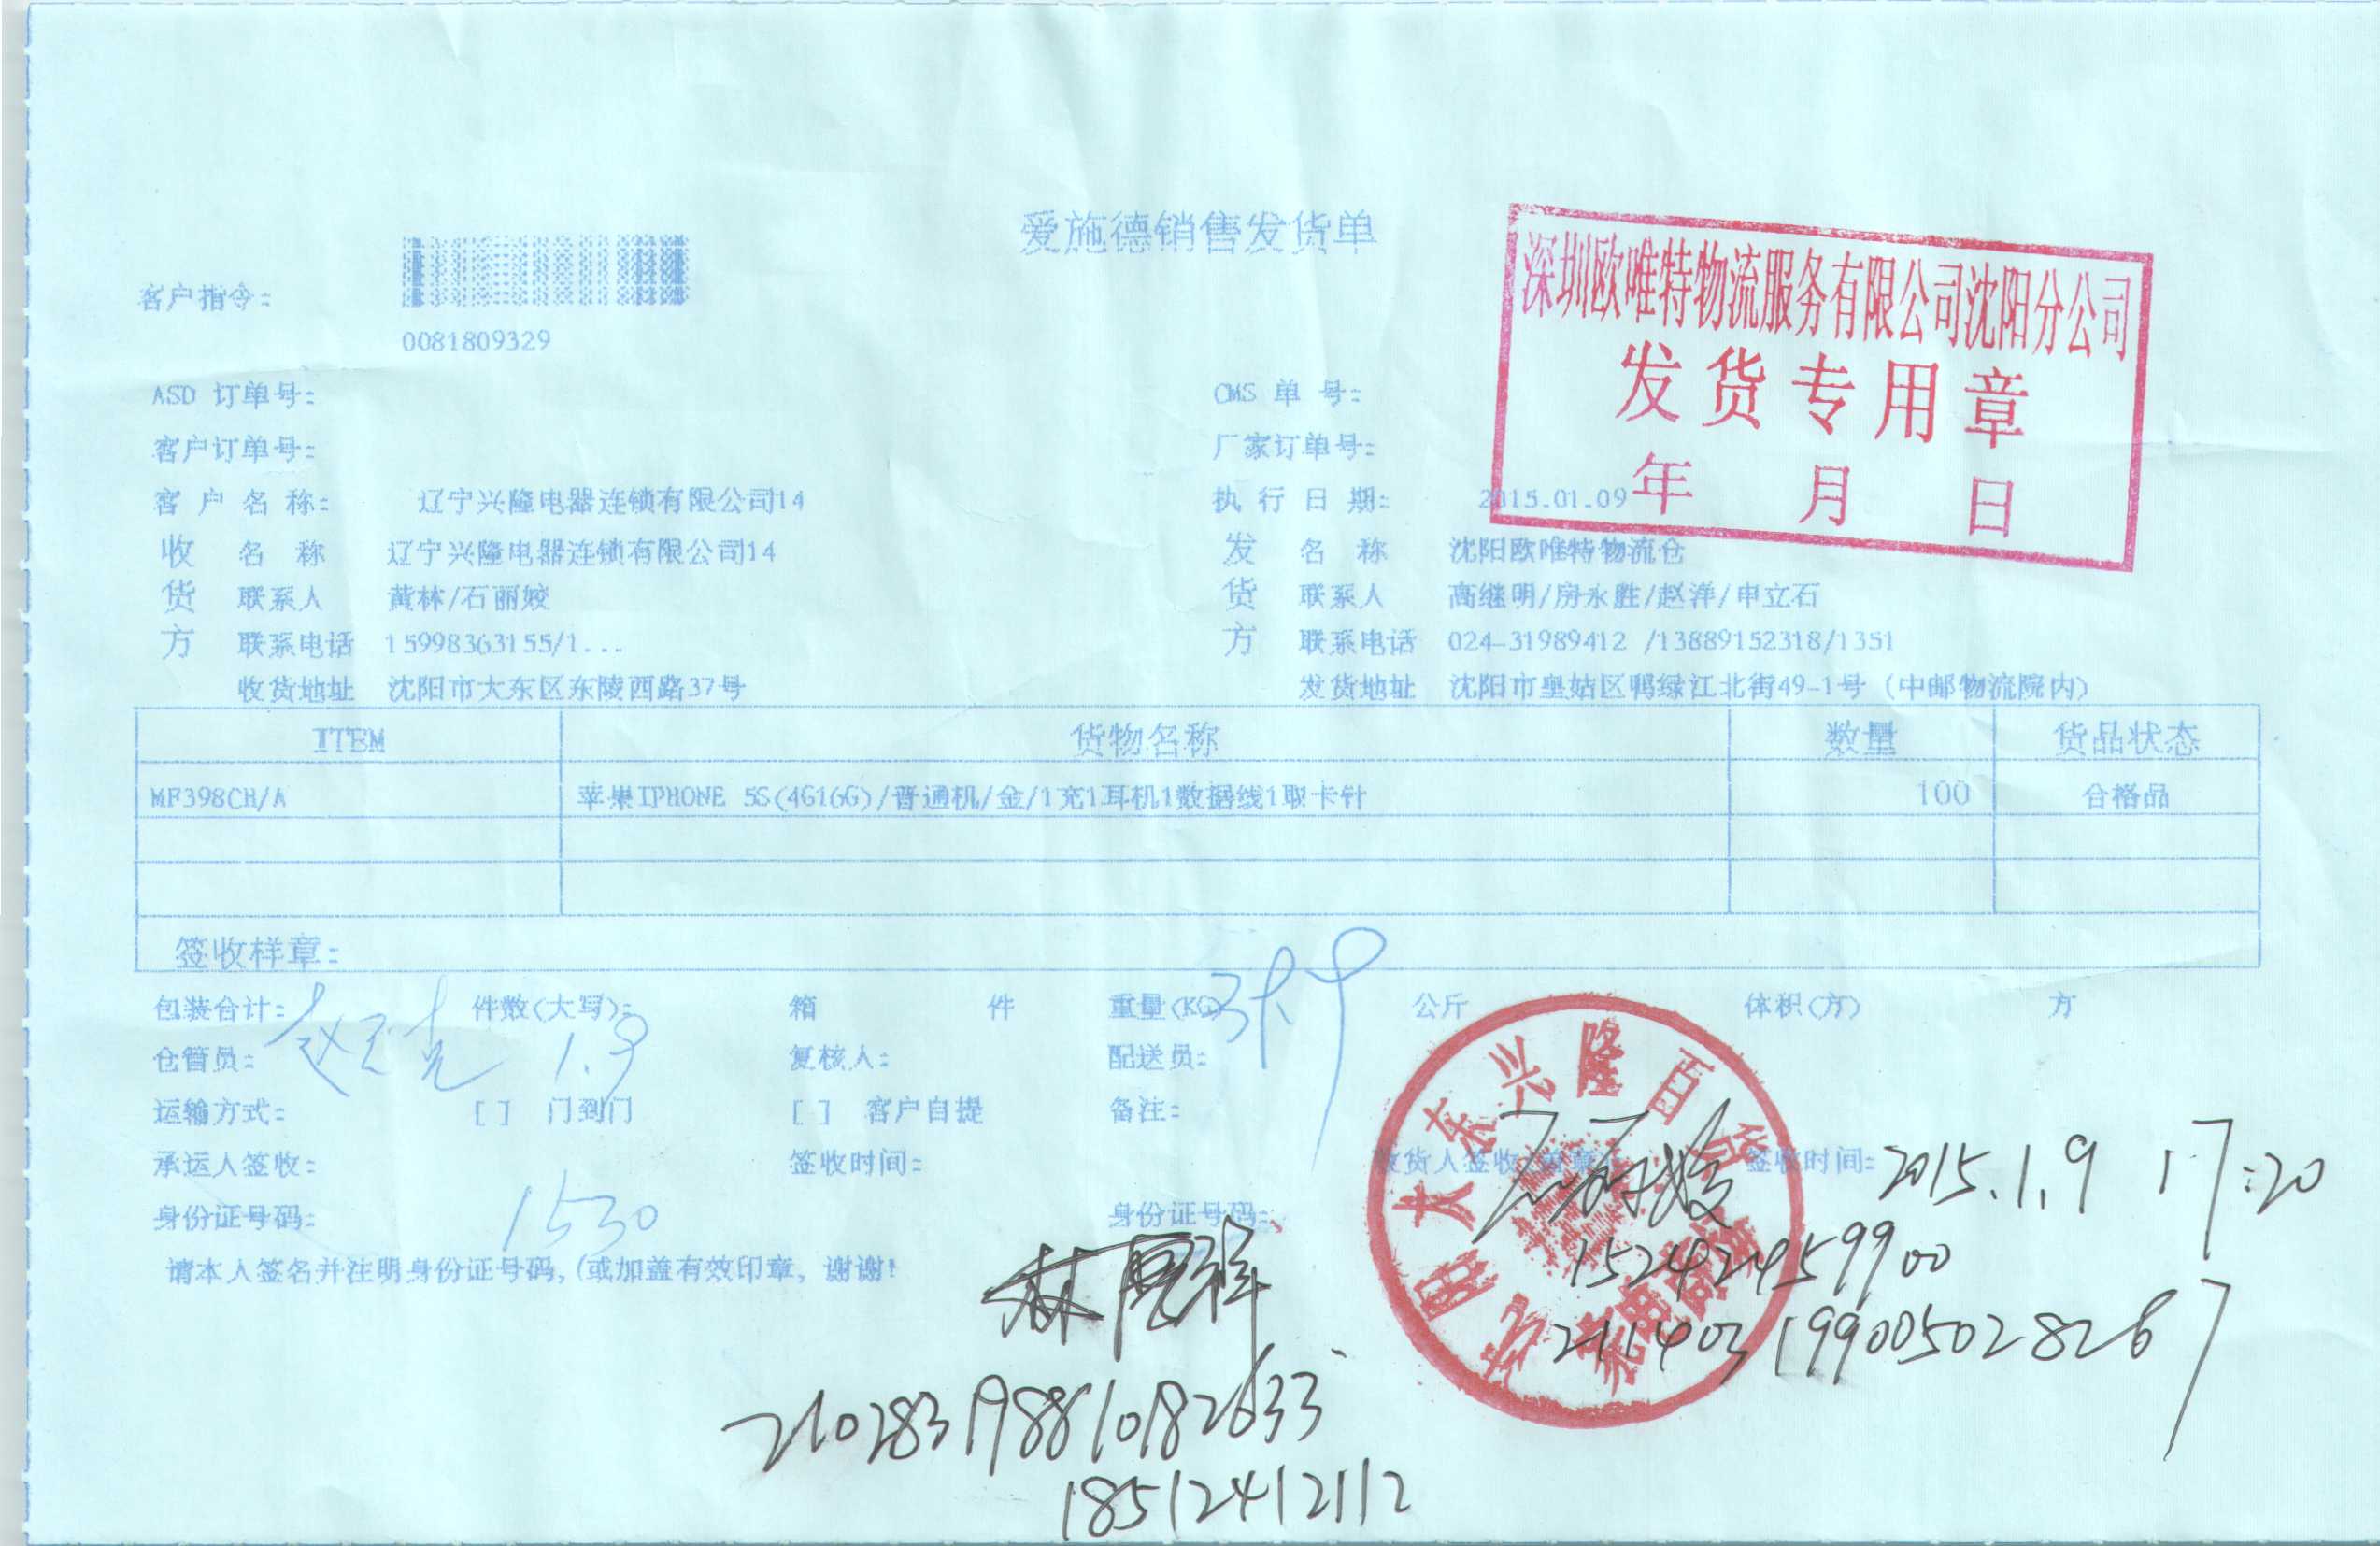 爱施德销售发货单
深圳欧唯特物流服务有限公司沈阳分公司
发货专用章
年 月 日
客户指令:
0081809329
ASD 订单号: CMS 单 号:
客户订单号: 厂家订单号:
客 户 名 称: 辽宁兴隆电器连锁有限公司14 执 行 日 期: 2015.01.09
收 名 称 辽宁兴隆电器连锁有限公司14 发 名 称 沈阳欧唯特物流仓
货 联系人 黄林/石丽姣 货 联系人 高继明/房永胜/赵洋/申立石
方 联系电话 15998363155/1... 方 联系电话 024-31989412 /13889152318/1351
收货地址 沈阳市大东区东陵西路37号 发货地址 沈阳市皇姑区鸭绿江北街49-1号 (中邮物流院内)
ITEM 货物名称 数量 货品状态
MF398CH/A 苹果IPHONE 5S(4G16G)/普通机/金/1充1耳机1数据线1取卡针 100 合格品
签收样章:
包装合计: 件数(大写): 箱 件 重量(KG) 公斤 体积(方) 方
仓管员: 1.9 复核人: 配送员:
运输方式: [ ] 门到门 [ ] 客户自提 备注:
承运人签收: 签收时间: 收货人签收 签收时间: 2015.1.9 17:20
身份证号码: 1530 身份证号码:
请本人签名并注明身份证号码,(或加盖有效印章, 谢谢!
沈阳大东兴隆百货
石丽姣
15242459900
211403199005028267
210283198810182633
18512412112